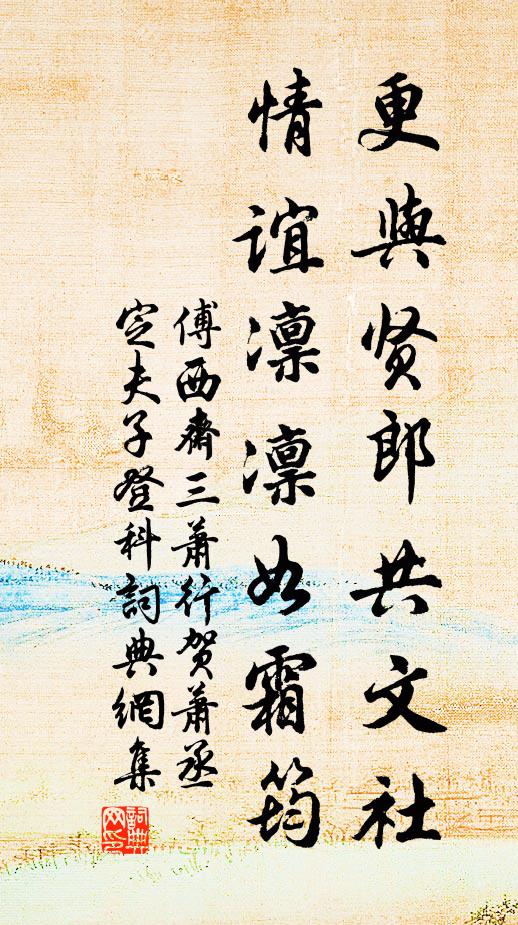 更與贤郎共文社
情谊凛凛如霜筠
傅西齋三萧行贺萧丞
定夫子登科詞典網集
詞典网印